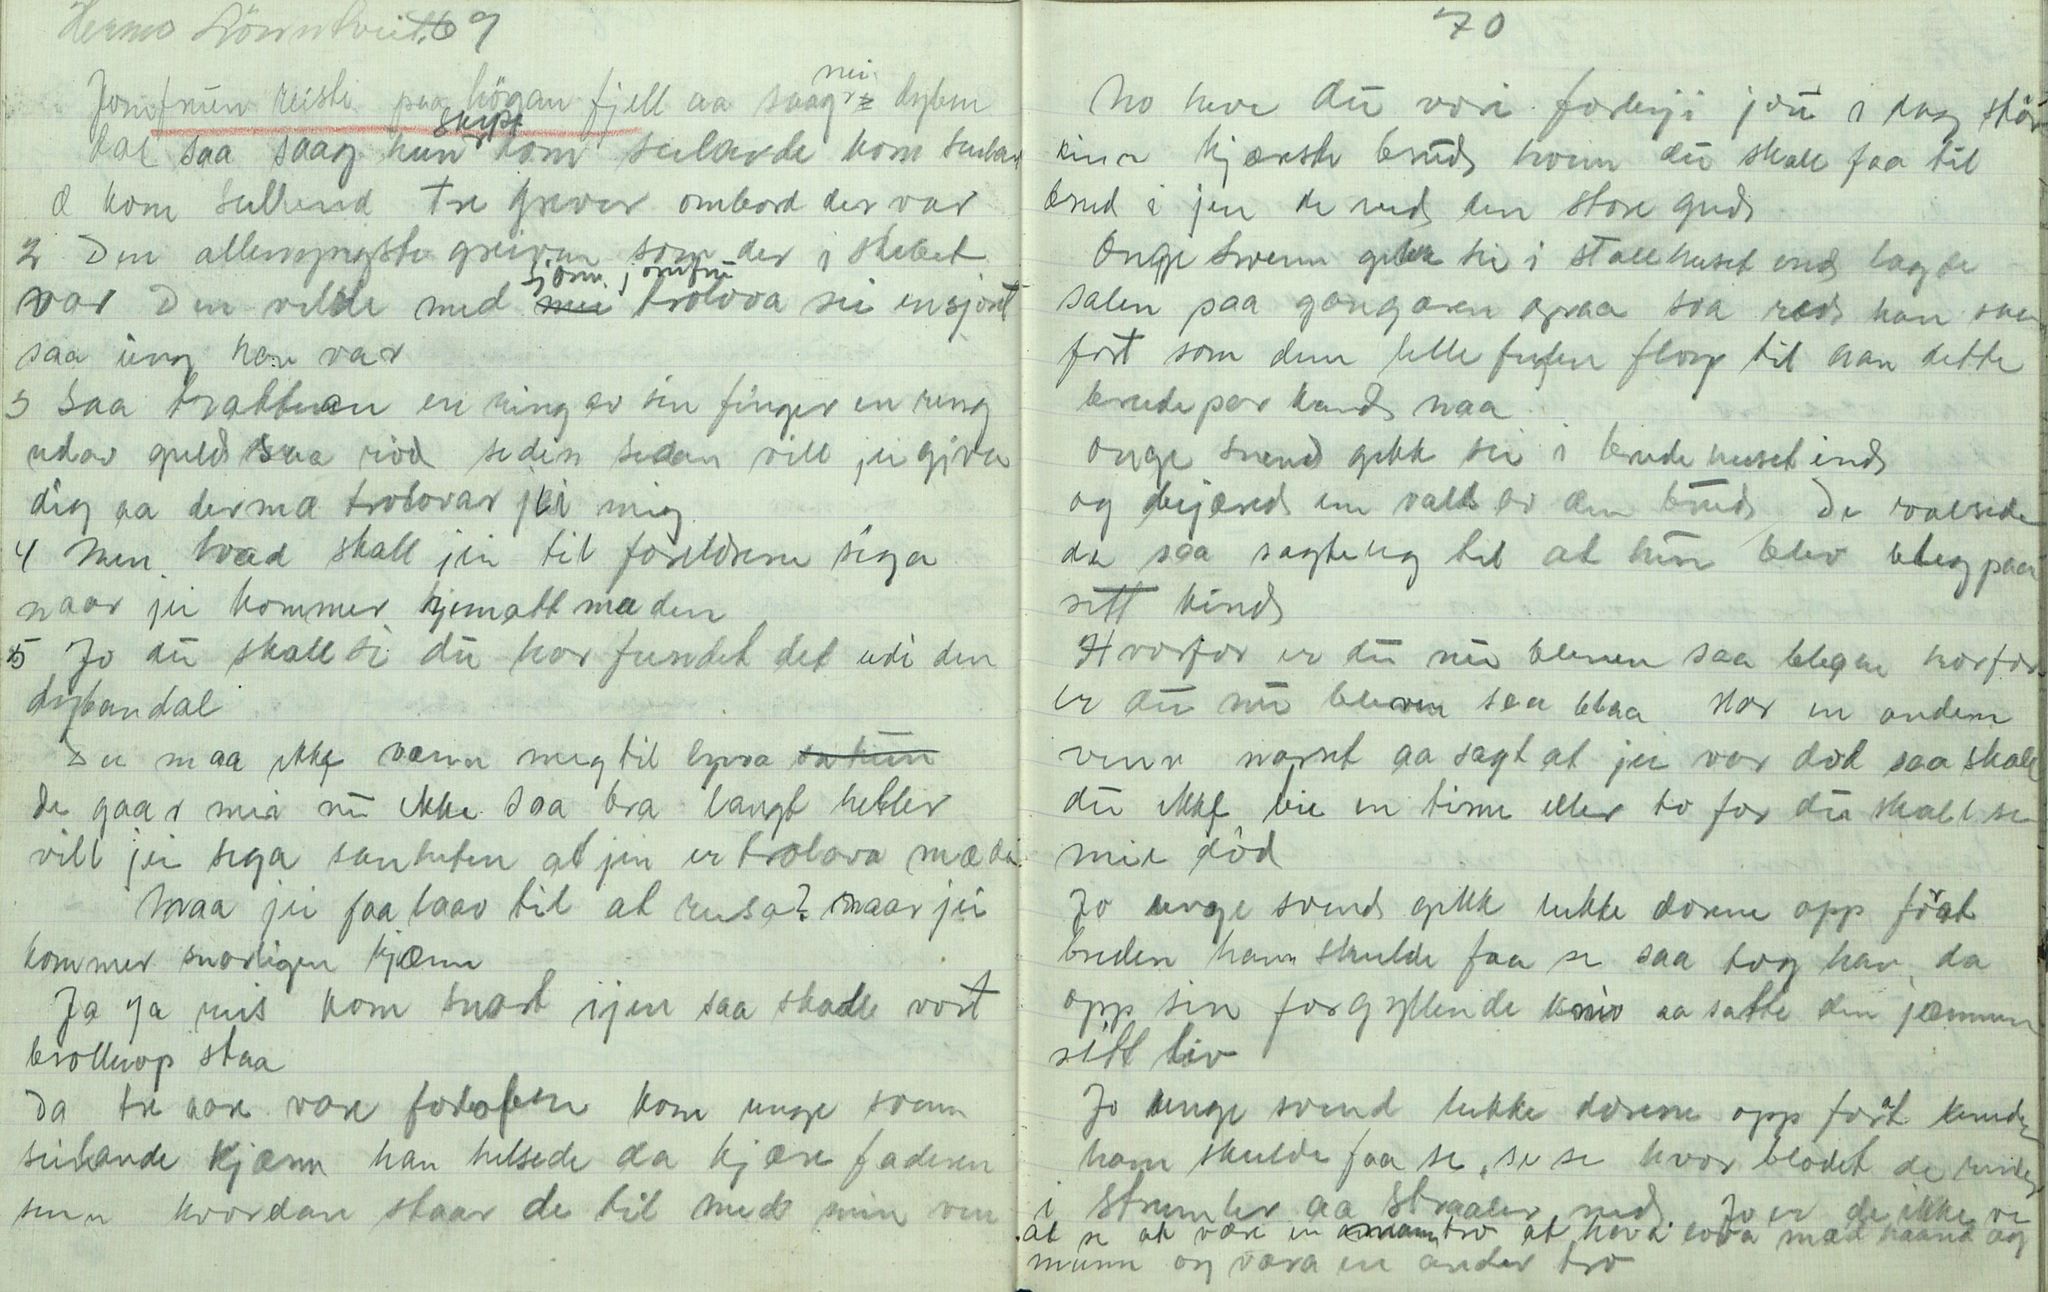 69
Jomfruen reiste paa högan fjell aa saag nei dyben
dal saa saag hun skipe kom seilande kom seilan
d kom seilend tre grever ombord der var
2 Den allemyngste greiven som der i skibet
var Den vilde med jom jomfru trolova sei ensjönt
saa ung han var
3 Saa trakte an en ring av sin finger en ring
udav guld saa röd seden sedan vill jei giva
dig aa derma trolovar jei mig
4 Men hvad skall jei til foreldrene siga
naar jei kommer hjematt maden
5 Jo du skall si du har fundet det udi den
dybandal
Du maa ikke venn meg til lyva
de gaar mei nu ikke saa bra langt heller
vill jei siga sanheten at jei er trolova mæ dei
Maa jei faa laav til at reisa? naar jei
kommer snarligen hjæm
Ja ja reis kom snart ijen saa skall vort
brollop staa
Da tre aar vare forloben kom unge svenn
seilande hjæm han helsede da kjære faderen
sin hvordan staar de til med min ven
70
No heve du vore forleji jou i dag stör
kjæreste brud hvem du skall faa til
brud i jen de ved den store gud
Onge Svenn gikk sei i stallhuset ind lagde
salen paa gangaren graa saa red han saa
fort som den lille fuglen flog til han dette
brudepar kund naa
Onge svend gikk sei i brudehuset ind
og bejæred en vals av den brud De valsede
da saa sagtelig til at hun blev bleg paa
sitt kind
Hvorfor er du nu bleven saa blegne horfor
er du nu bleven saa blaa Har en anden
venn vorset aa sagt at jei var död saa skall
du ikke bie en time eller to for du skall se
mei död
Jo unge svend gikk lukke dorene opp föat
bruden ham skulde faa se saa tog han da
opp sin forgyllende kniv aa satte den jæmmen
sitt liv
Jo unge svend lukke dorene opp forat bruden
ham skulde faa se, se se hvor blodet de rinder
i strimler aa straaler ned Jo er de ikke ve
at se at være en tro at hava lova mæd haand og
munn og vara en ander tro